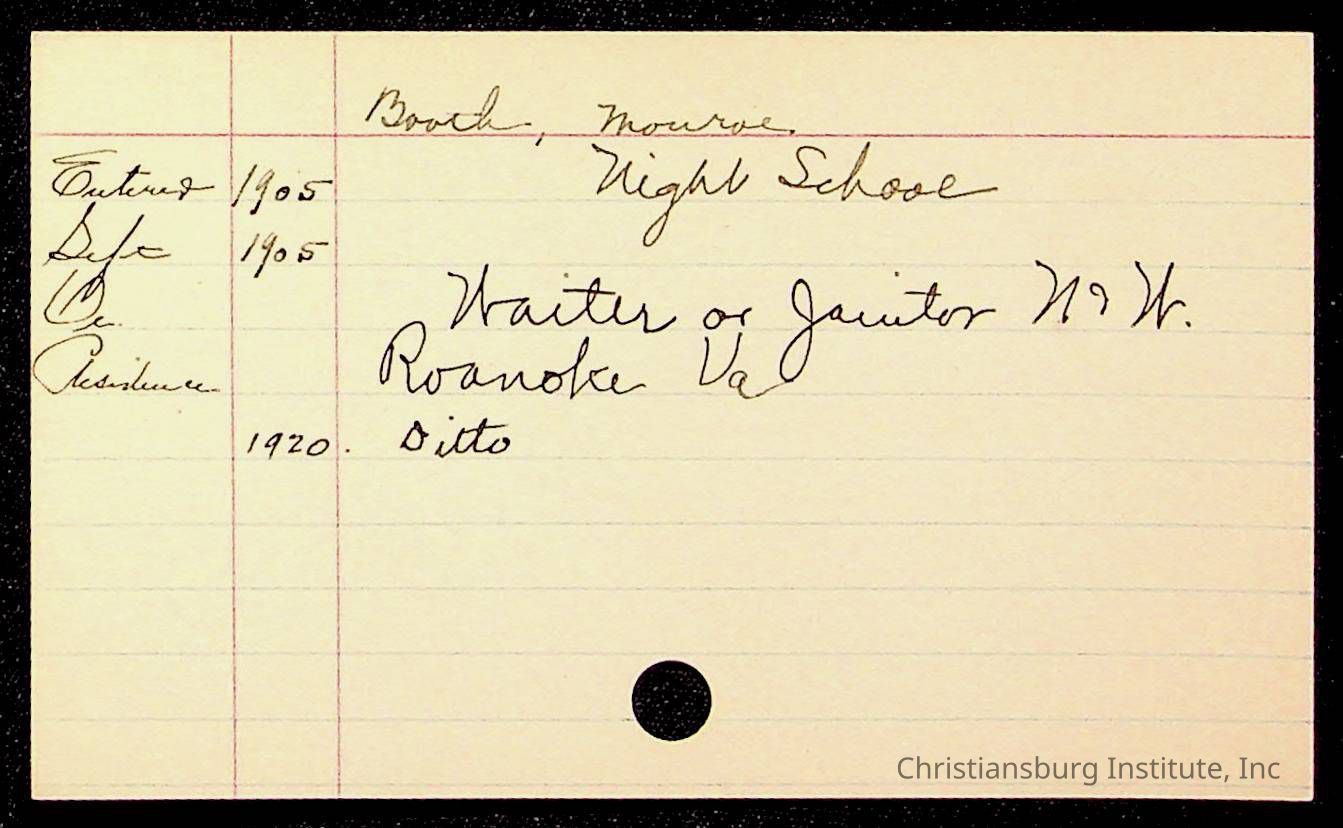 Booth, Monroe.
Entered 1905 Night School
Left 1905
Oc. Waiter or Janitor N & W.
Residence Roanoke Va
1920. Ditto
Christiansburg Institute, Inc